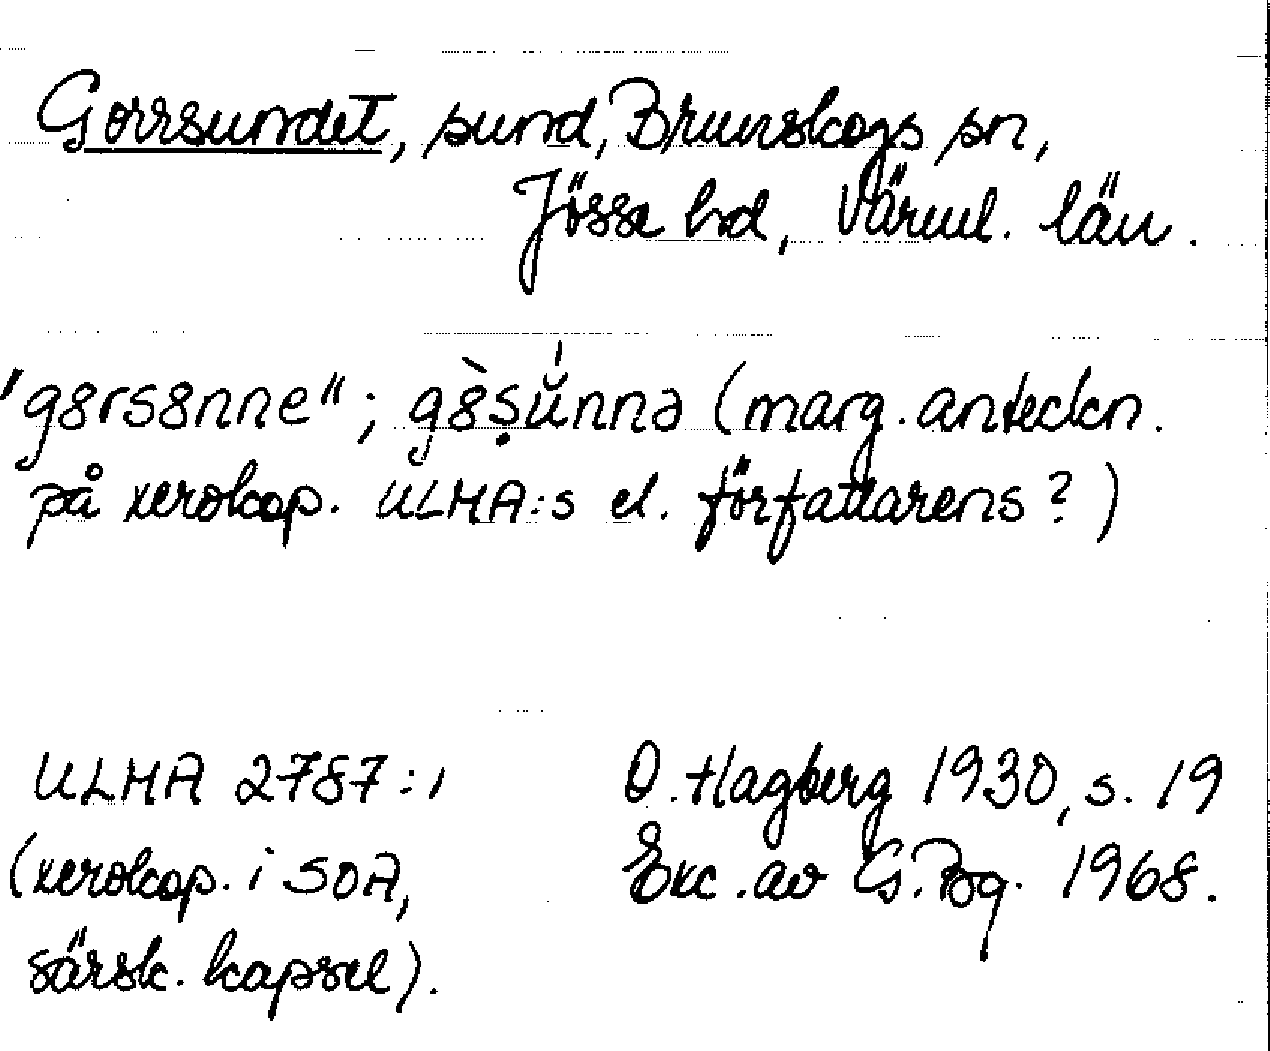 Gorrsundet, sund, Brunskogs sn,
Jösse hd, Värml. län.
"g8rs8nne"; g8̀ṣŭ́nnə (marg. anteckn.
på xerokop. ULMA:s el. författarens?)
ULMA 2787:1
(xerokop. i SOA,
särsk. kapsel).
O. Hagberg 1930, s. 19
Exc. av G. Bg. 1968.